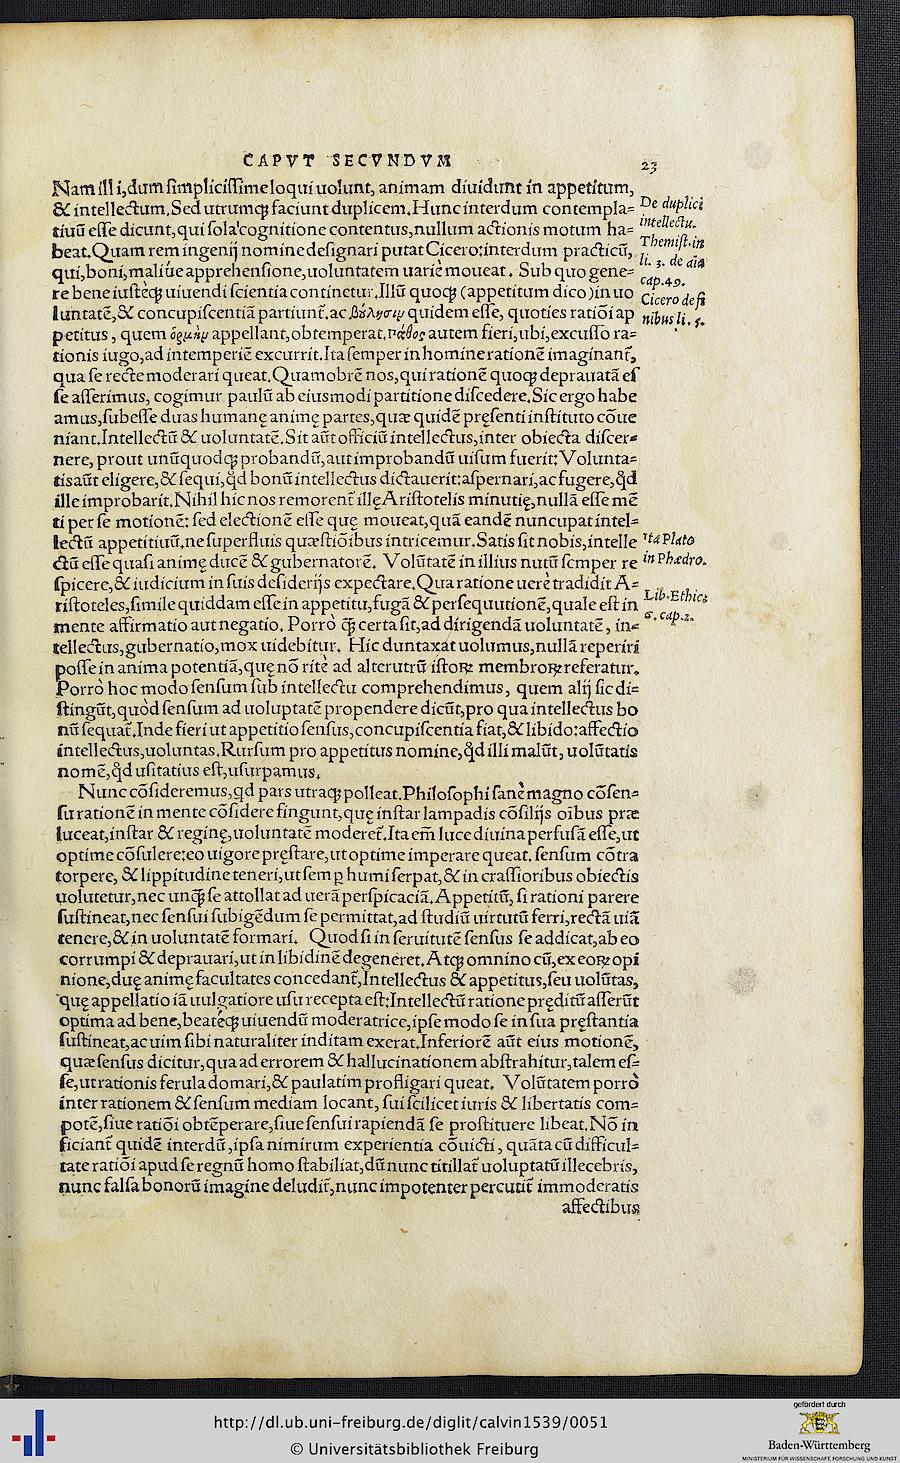 CAPVT SECVNDVM
23
Nam illi, dum simplicissime loqui uolunt, animam diuidunt in appetitum,
& intellectum. Sed utrumq; faciunt duplicem. Hunc interdum contempla=
tiuũ esse dicunt, qui sola cognitione contentus, nullum actionis motum ha=
beat. Quam rem ingenij nomine designari putat Cicero: interdum practicũ,
qui, boni, maliue apprehensione, uoluntatem uarie moueat. Sub quo gene=
re bene iusteq; uiuendi scientia continetur. Illũ quoq; (appetitum dico) in uo
luntatẽ, & concupiscentiã partiunt̃. ac βούλησιν quidem esse, quoties ratiõi ap
petitus, quem ὁρμὴν appellant, obtemperat. πάθος autem fieri, ubi, excusso ra=
tionis iugo, ad intemperiẽ excurrit. Ita semper in homine rationẽ imaginant̃,
qua se recte moderari queat. Quamobrẽ nos, qui rationẽ quoq; deprauatã es
se asserimus, cogimur paulũ ab eiusmodi partitione discedere. Sic ergo habe
amus, subesse duas humanę animę partes, quæ quidẽ pręsenti instituto cõue
niant. Intellectũ & uoluntatẽ. Sit aũt officiũ intellectus, inter obiecta discer=
nere, prout unũquodq; probandũ, aut improbandũ uisum fuerit: Volunta=
tis aũt eligere, & sequi, qd̃ bonũ intellectus dictauerit: aspernari, ac fugere, qd̃
ille improbarit. Nihil hic nos remorent̃ illę Aristotelis minutię, nullã esse mẽ
ti per se motionẽ: sed electionẽ esse quę moueat, quã eandẽ nuncupat intel=
lectũ appetitiuũ. ne superfluis quæstiõibus intricemur. Satis sit nobis, intelle
ctũ esse quasi animę ducẽ & gubernatorẽ. Volũtatẽ in illius nutũ semper re
spicere, & iudicium in suis desiderijs expectare. Qua ratione uerè tradidit A=
ristoteles, simile quiddam esse in appetitu, fugã & persequutionẽ, quale est in
mente affirmatio aut negatio. Porrò q̃ certa sit, ad dirigendã uoluntatẽ, in=
tellectus, gubernatio, mox uidebitur. Hic duntaxat uolumus, nullã reperiri
posse in anima potentiã, quę nõ ritè ad alterutrũ istoꝝ membroꝝ referatur.
Porrò hoc modo sensum sub intellectu comprehendimus, quem alij sic di=
stingũt, quòd sensum ad uoluptatẽ propendere dicũt, pro qua intellectus bo
nũ sequat̃. Inde fieri ut appetitio sensus, concupiscentia fiat, & libido: affectio
intellectus, uoluntas. Rursum pro appetitus nomine, qd̃ illi malũt, uolũtatis
nomẽ, qd̃ usitatius est, usurpamus.
Nunc cõsideremus, qd pars utraq; polleat. Philosophi sanè magno cõsen=
su rationẽ in mente cõsidere fingunt, quę instar lampadis cõsilijs oĩbus præ
luceat, instar & reginę, uoluntatẽ moderet̃. Ita em̃ luce diuina perfusã esse, ut
optime cõsulere: eo uigore pręstare, ut optime imperare queat. sensum cõtra
torpere, & lippitudine teneri, ut semꝑ humi serpat, & in crassioribus obiectis
uolutetur, nec unq̃ se attollat ad uerã perspicaciã. Appetitũ, si rationi parere
sustineat, nec sensui subigẽdum se permittat, ad studiũ uirtutũ ferri, rectã uiã
tenere, & in uoluntatẽ formari. Quod si in seruitutẽ sensus se addicat, ab eo
corrumpi & deprauari, ut in libidinẽ degeneret. Atq; omnino cũ, ex eoꝝ opi
nione, duę animę facultates concedant̃, Intellectus & appetitus, seu uolũtas,
quę appellatio iã uulgatiore usu recepta est: Intellectũ ratione pręditũ asserũt
optima ad bene, beateq; uiuendũ moderatrice, ipse modo se in sua pręstantia
sustineat, ac uim sibi naturaliter inditam exerat. Inferiorẽ aũt eius motionẽ,
quæ sensus dicitur, qua ad errorem & hallucinationem abstrahitur, talem es=
se, ut rationis ferula domari, & paulatim profligari queat. Volũtatem porrò
inter rationem & sensum mediam locant, sui scilicet iuris & libertatis com=
potẽ, siue ratiõi obtẽperare, siue sensui rapiendã se prostituere libeat. Nõ in
ficiant̃ quidẽ interdũ, ipsa nimirum experientia cõuicti, quãta cũ difficul=
tate ratiõi apud se regnũ homo stabiliat, dũ nunc titillat̃ uoluptatũ illecebris,
nunc falsa bonorũ imagine deludit̃, nunc impotenter percutit̃ immoderatis
affectibus
De duplici
intellectu.
Themist. in
li. 3. de aĩa
cap. 49.
Cicero de fi
nibus li. 5.
Ita Plato
in Phædro.
Lib. Ethic.
6. cap. 2.
http://dl.ub.uni-freiburg.de/diglit/calvin1539/0051
© Universitätsbibliothek Freiburg
gefördert durch
Baden-Württemberg
MINISTERIUM FÜR WISSENSCHAFT, FORSCHUNG UND KUNST